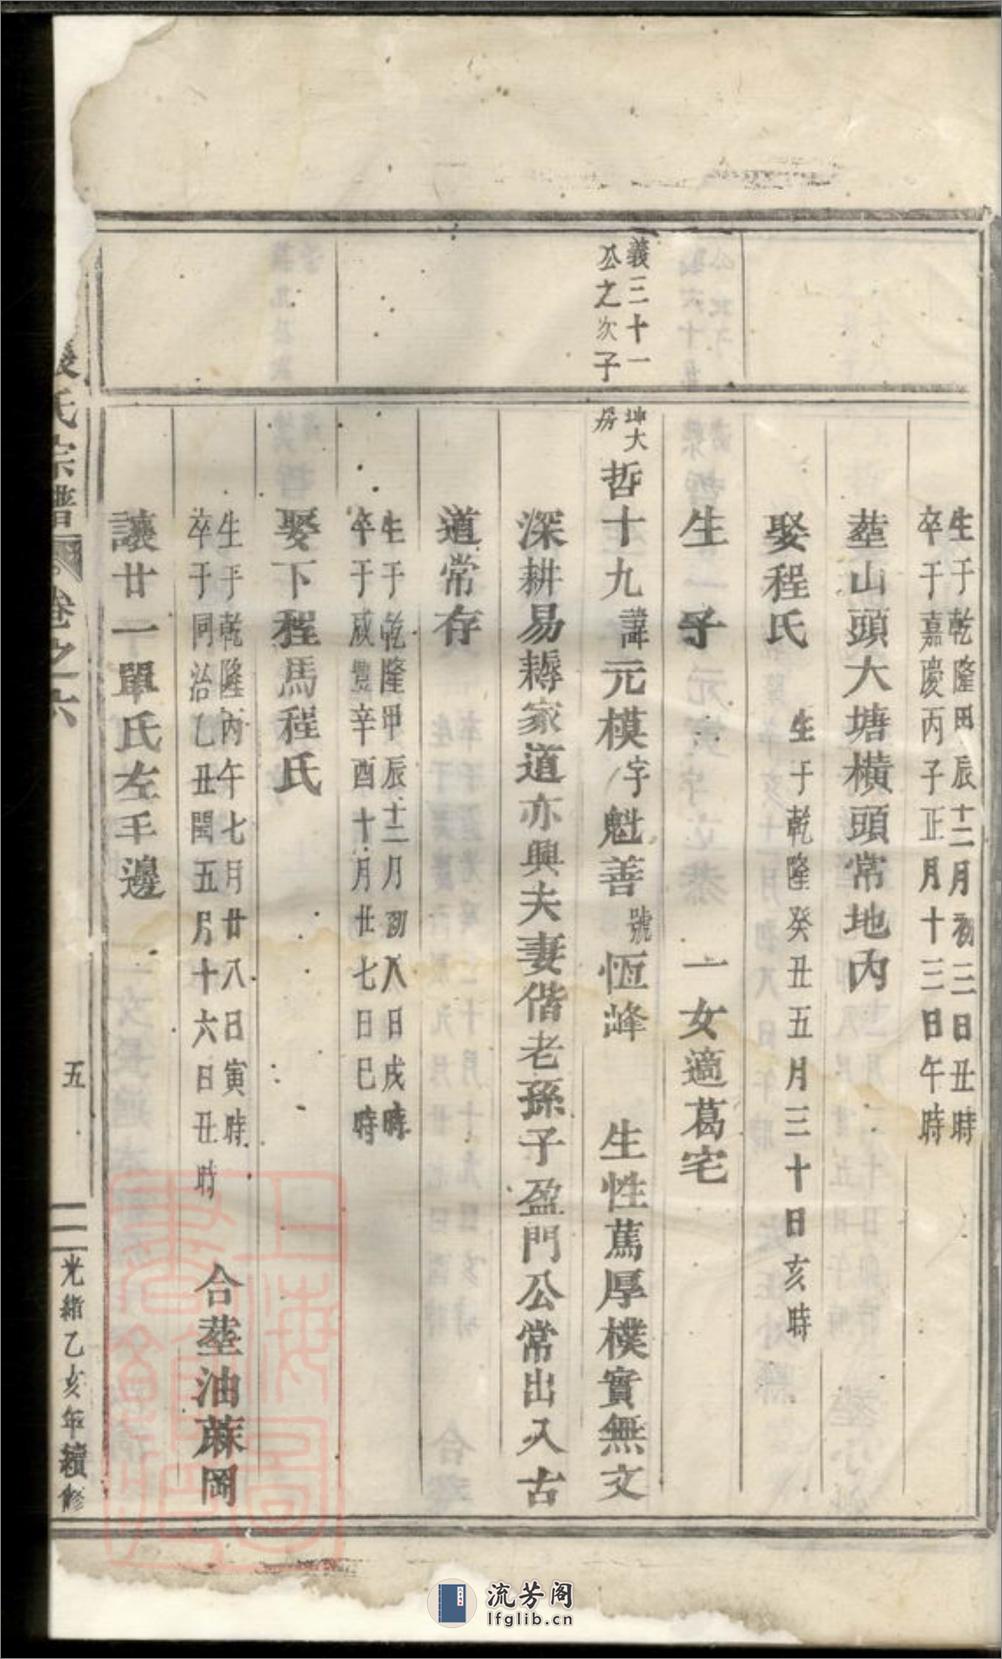 生于乾隆甲辰十二月初三日丑時
卒于嘉慶丙子正月十三日午時
塟山頭大塘橫頭常地內
娶程氏 生于乾隆癸丑五月三十日亥時
生一子 一女適葛宅
義三十一
公之次子
坤大
房
哲十九諱元模字魁善號恆峰 生性篤厚樸實無文
深耕易耨家道亦興夫妻偕老孫子盈門公常出入古
道常存
生于乾隆甲辰十二月初八日戌時
卒于咸豐辛酉十月廿七日巳時
娶下程馬程氏
生于乾隆丙午七月廿八日寅時
卒于同治乙丑閏五月十六日丑時
合塟油蔴岡
讓廿一單氏左手邊
氏宗譜 卷之六 五 光緒乙亥年續修
流芳阁
lfglib.cn